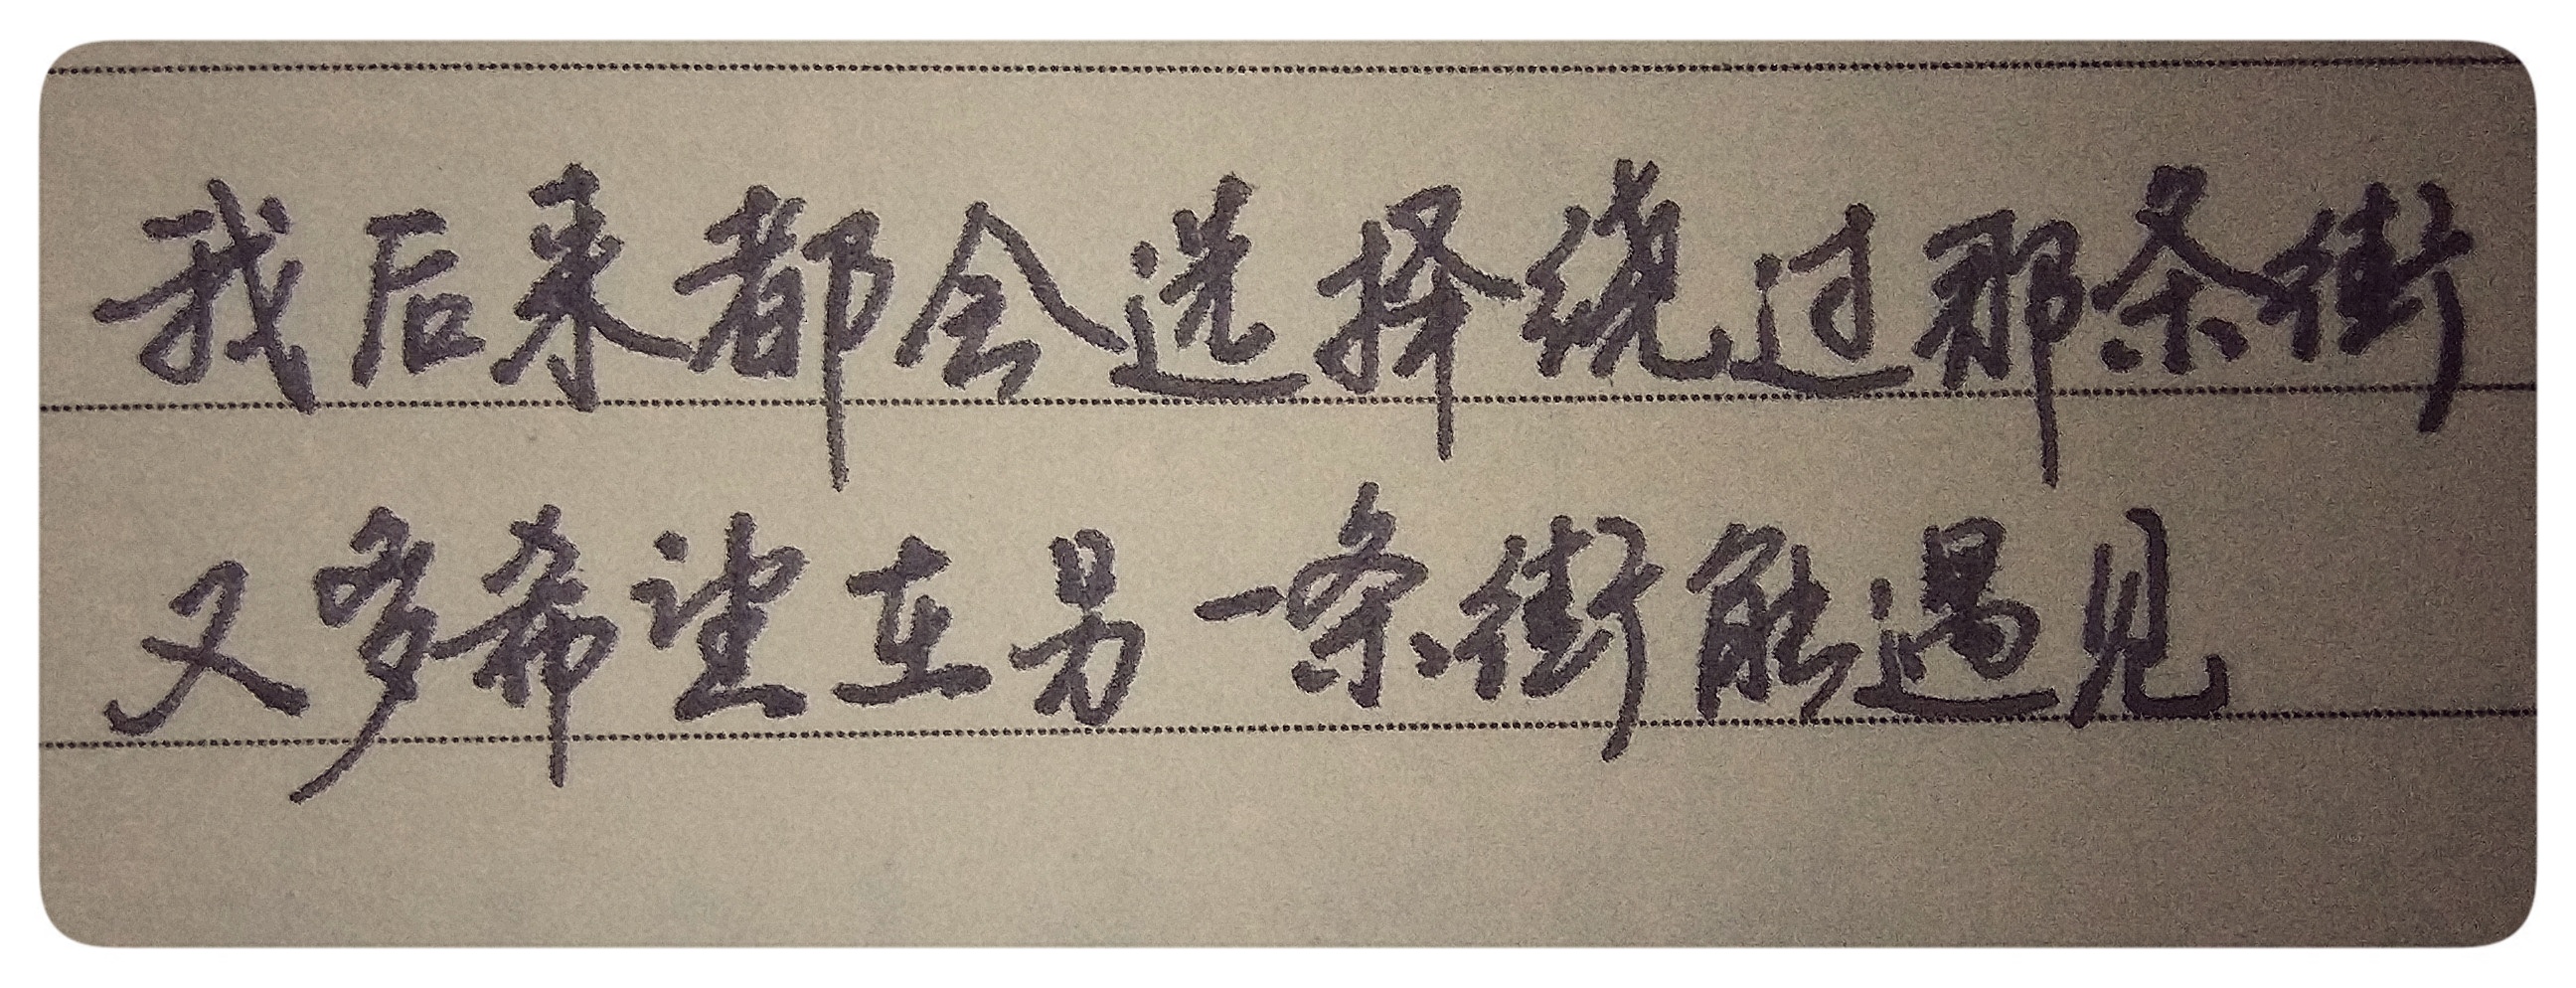 我后来都会选择绕过那条街
又多希望在另一条街能遇见